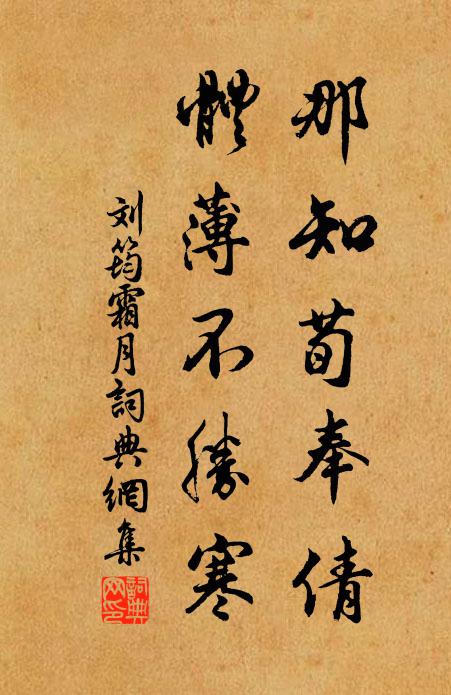 那知荀奉倩
體薄不勝寒
刘筠霜月詞典網集
詞典网印